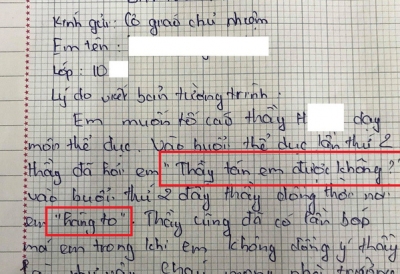 Kính gửi: Cô giáo chủ nhiệm
Em tên:
Lớp: 10
Lý do viết bản tường trình:
Em muốn tố cáo thầy H dạy
môn thể dục. Vào buổi thể dục lần thứ 2
thầy đã hỏi em "Thầy tán em được không?"
vào buổi thứ 2 đấy thầy đồng thời nói
em "háng to". Thầy cũng đã có lần bóp
má em trong khi em không đồng ý thầy